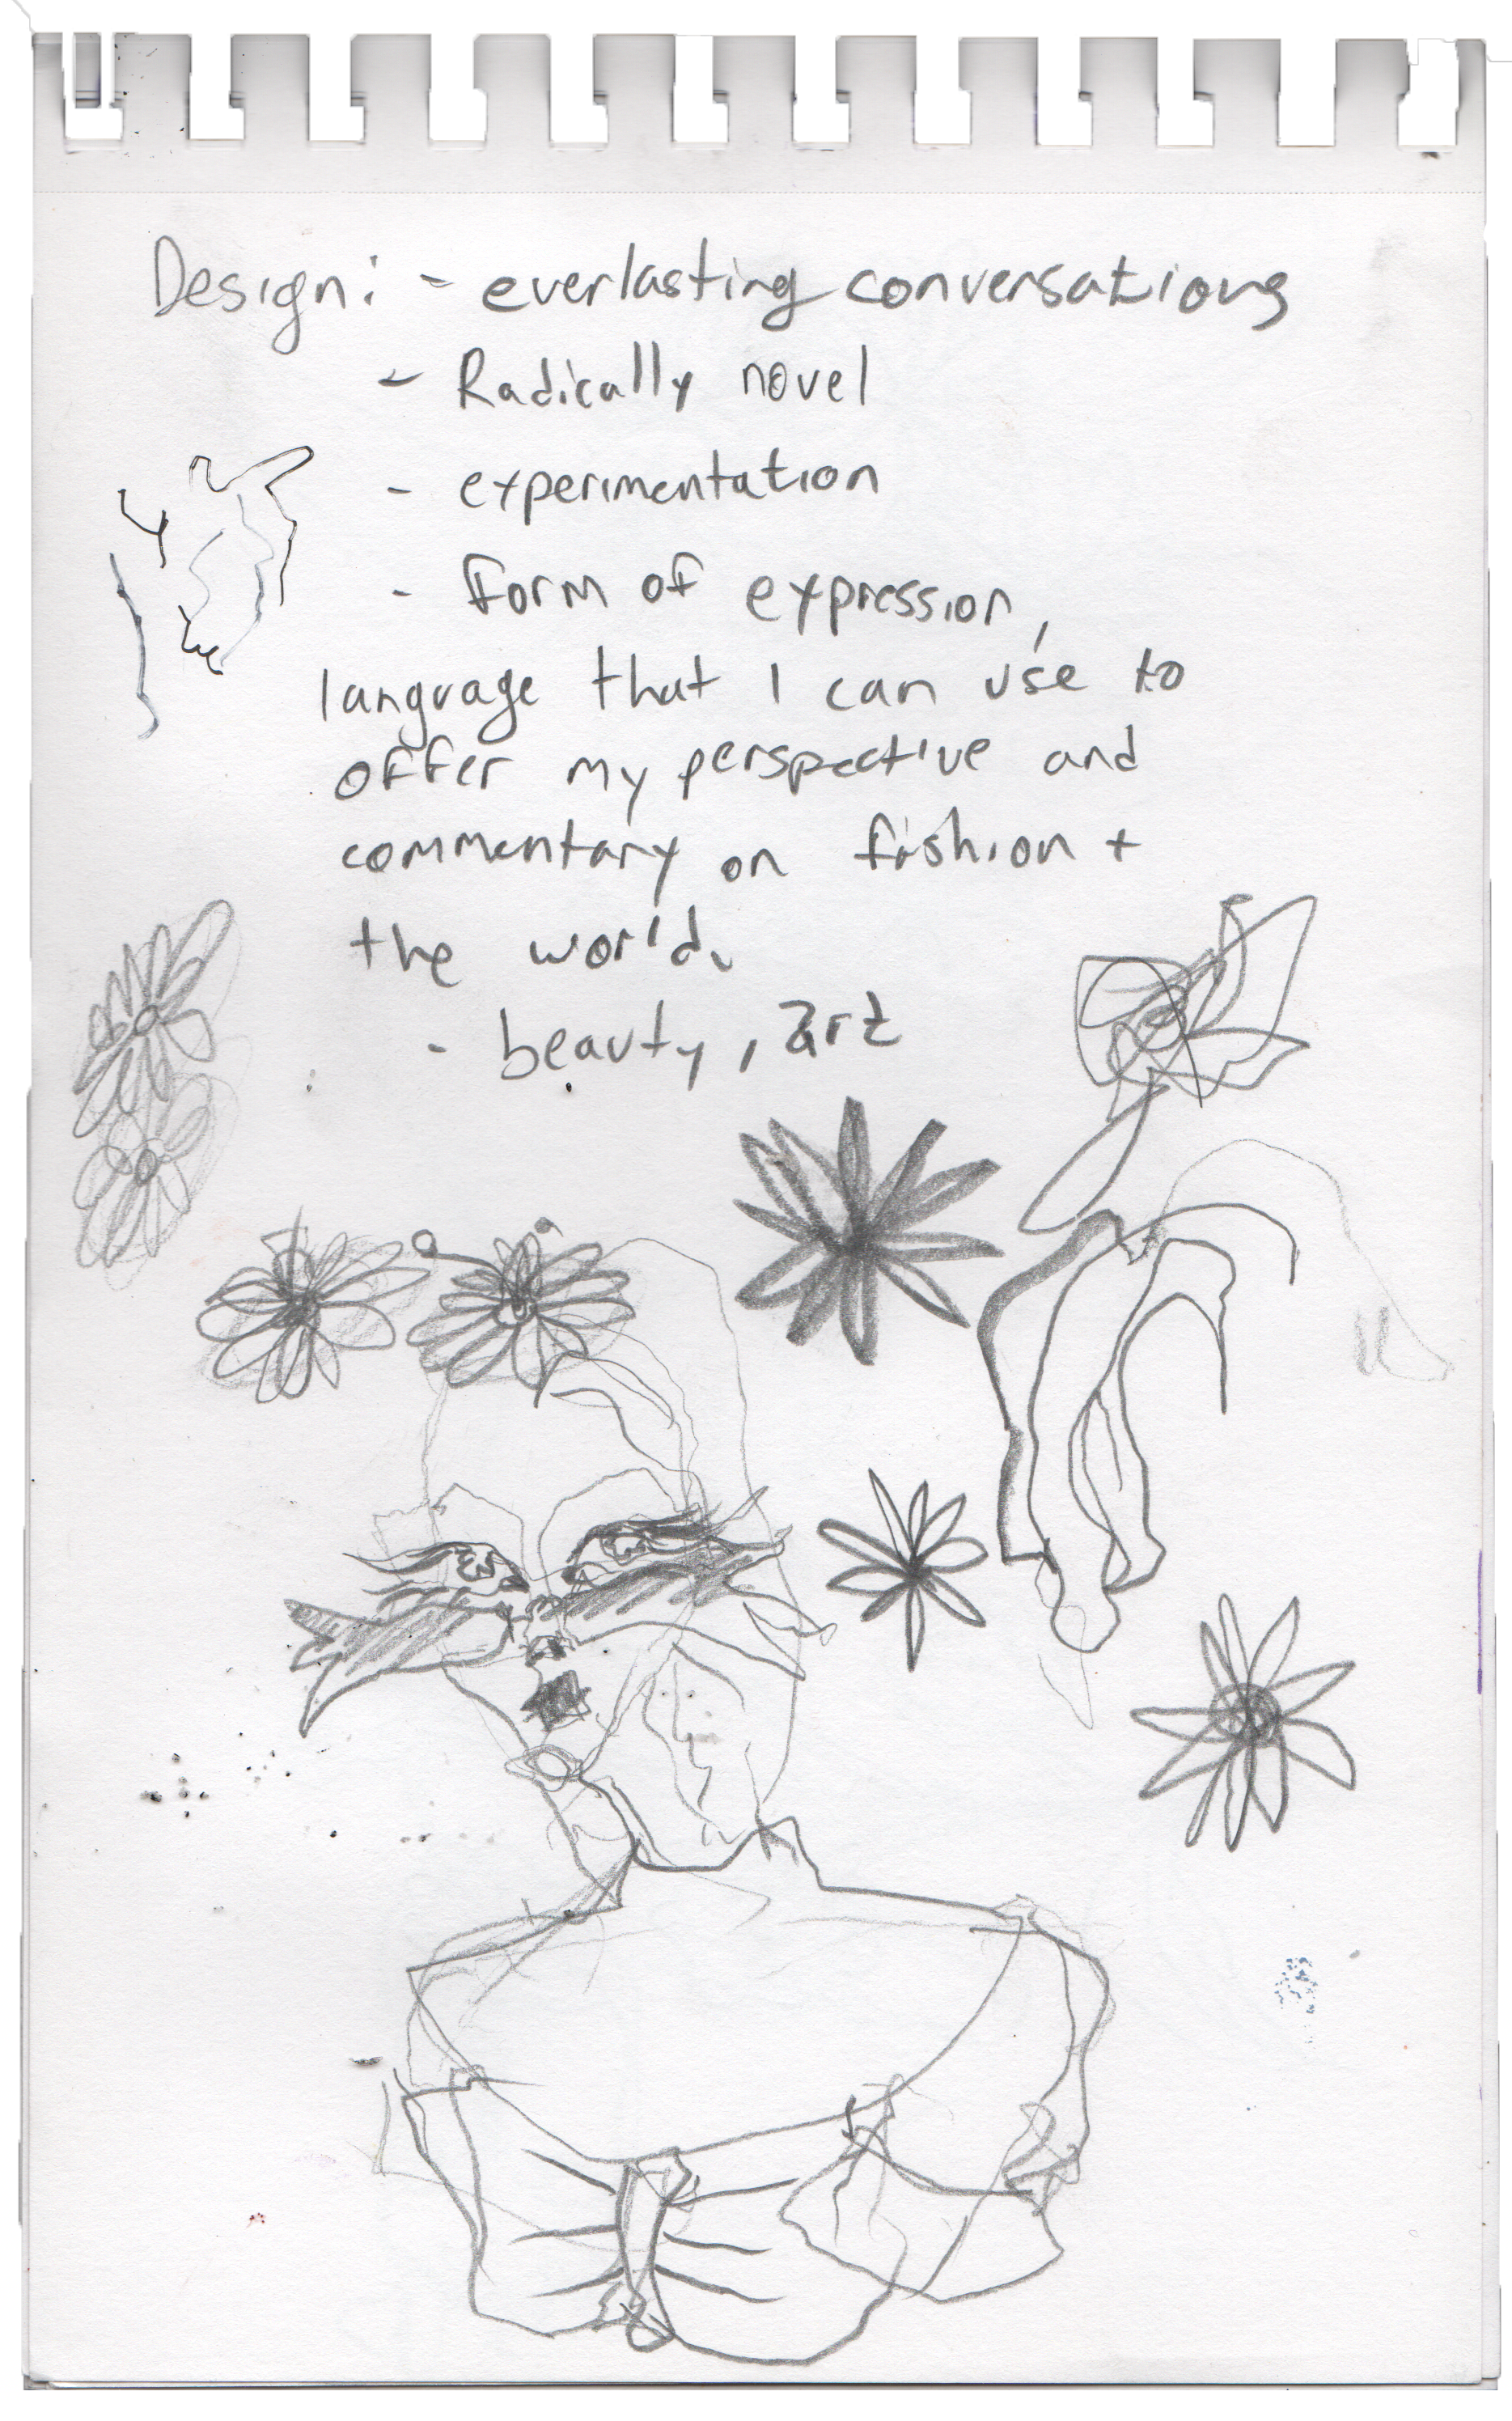 Design: - everlasting conversations
- Radically novel
- experimentation
- Form of expression,
language that I can use to
offer my perspective and
commentary on fashion +
the world.
- beauty, art